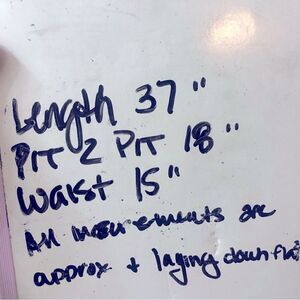 Length 37"
PIT 2 PIT 18"
Waist 15"
All mesurements are
approx + laying down flat